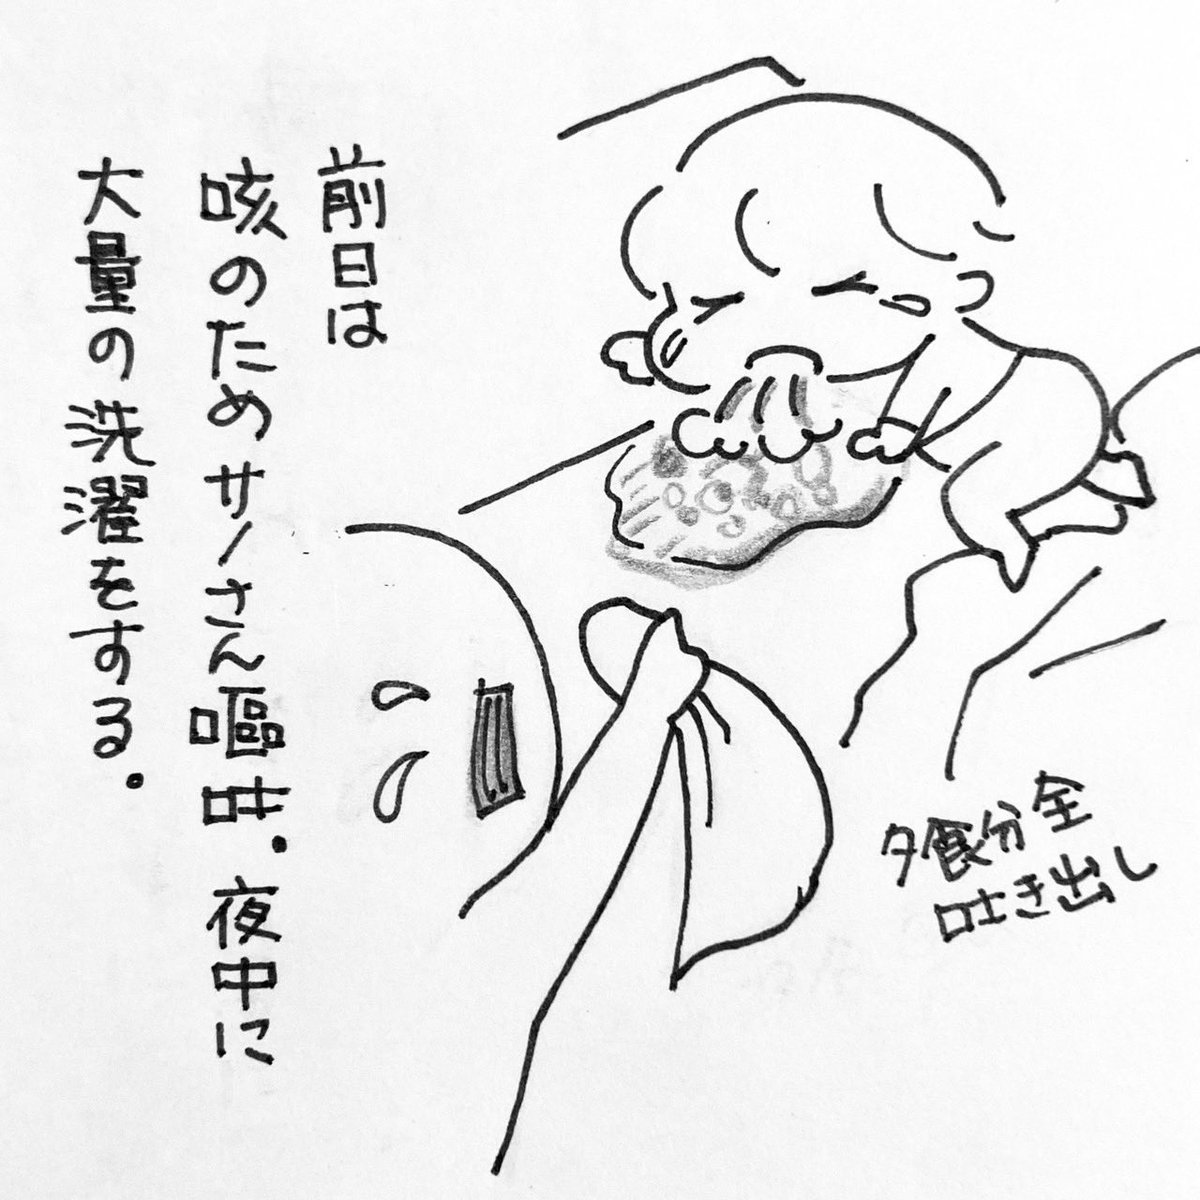 前日は
咳のためサノさん嘔吐。夜中に
大量の洗濯をする。
夕食分全
吐き出し